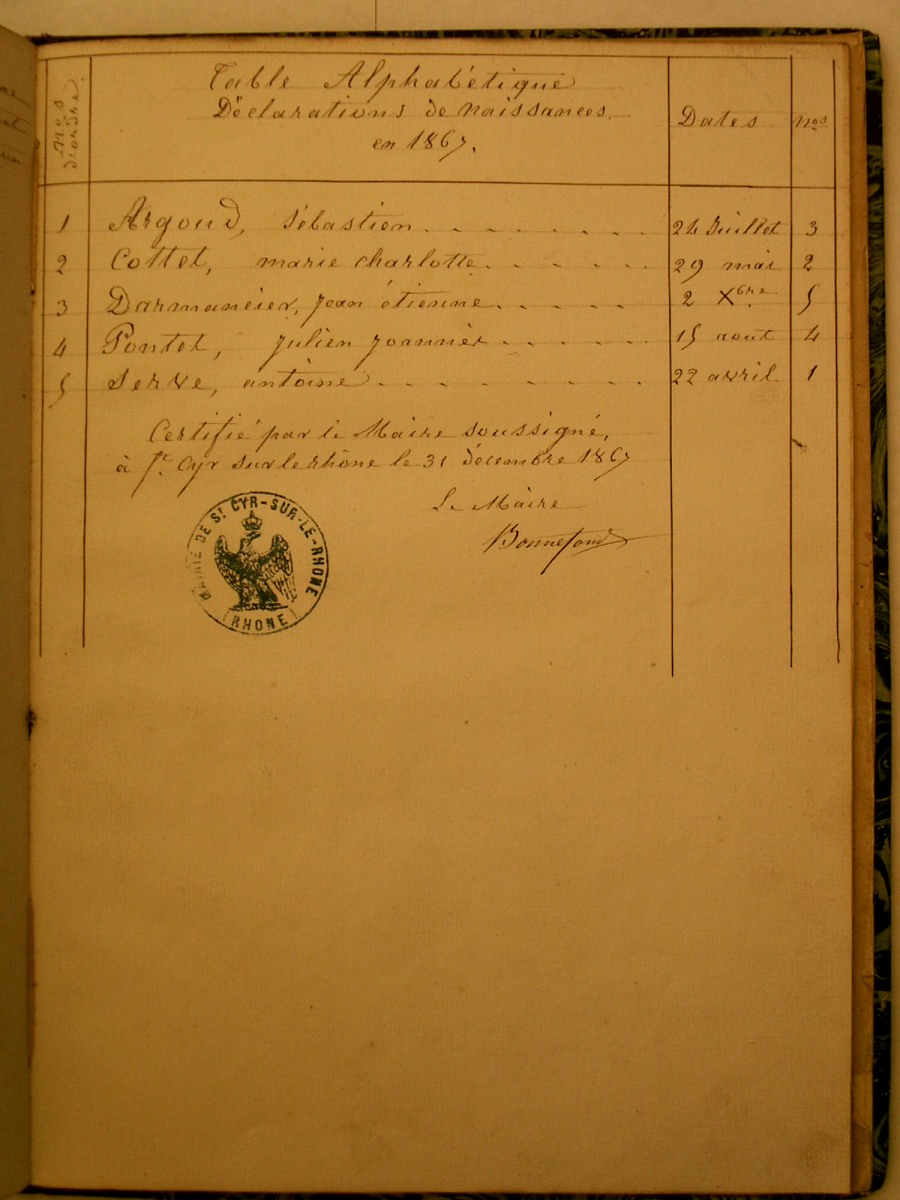 Nos d'ordre
Table Alphabétique
Déclarations de naissances
en 1867.
Dates
Nos
1 Argoud, Sébastien 24 Juillet 3
2 Cottet, marie charlotte 29 mai 2
3 Darmancier, Jean étienne 2 Xbre 5
4 Pontet, Julien Joannès 15 aout 4
5 Serve, antoine 22 avril 1
Certifié par le Maire soussigné,
à St. Cyr sur le rhône le 31 décembre 1867
Le Maire
Bonnefond
MAIRIE DE St CYR-SUR-LE-RHONE
(RHONE)